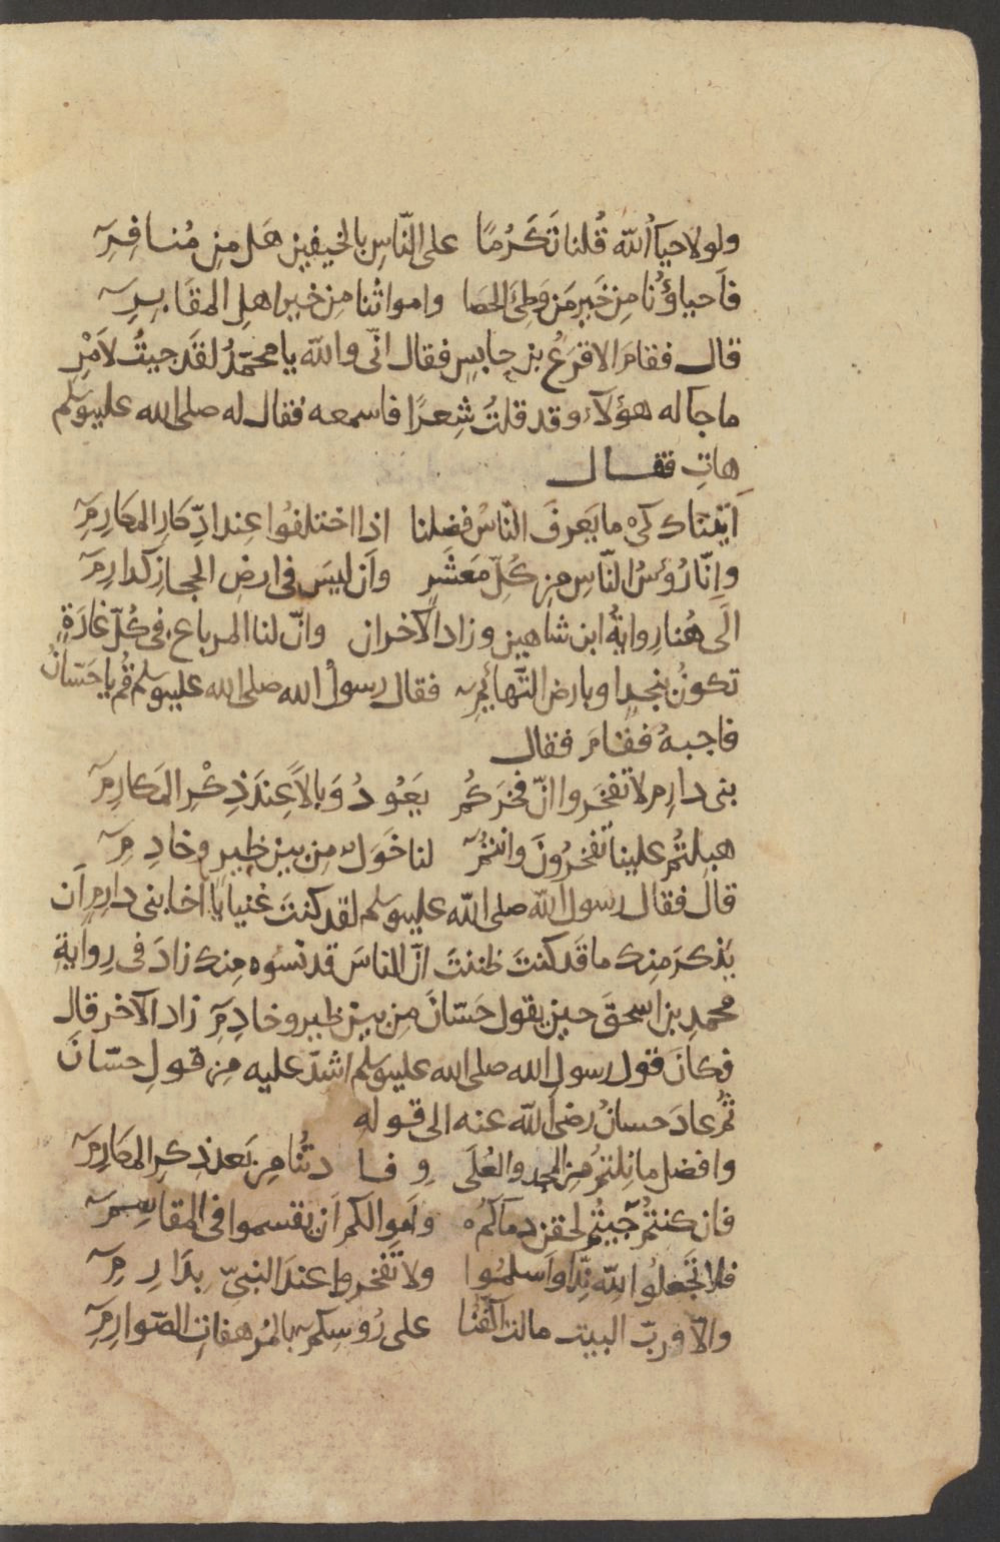 ولولا حياءُ الله قُلنا تَكَرُمًا على النّاسِ بالخيفينِ هَل مِن مُنافِرِ
فاَحياؤُنا مِن خَيرِ مَن وَطِئَ الحصا وامواتُنا مِن خيرِ اهلِ المقَابِرِ
قال فقامَ الاقرَعُ بن حابسٍ فقال انّى والله يا محمّدُ لقَد جيتُ لاَمْرٍ
ما جآ له هؤلآء وقد قلتُ شِعرًا فاسمعه فقال له صلى الله عليه وسلم
هاتِ فقال
اَتيناك كى ما يَعرفَ النّاسُ فضلنا اذا اختلفُوا عِند ادِّكارِ المكارِمِ
واِنّا رُؤسُ النّاسِ مِن كُلِّ مَعشَرٍ واَن ليسَ فى ارضِ الحجازِ كدارِمِ
الَى هُنا رِوايةُ ابن شاهين وزاد الآخران وانّ لنا المرباع فى كُلّ غارَةٍ
تكونُ بنجدٍ او بارض التّهائِمِ فقال رسولُ الله صلى الله عليه وسلم قُم يا حَسّانُ
فاجبهُ فقامَ فقال
بنى دارِمٍ لا تفخَروا انّ فخرَكُم يَعُودُ وَبالاً عِندَ ذِكْرِ المَكارِمِ
هبِلتُم علينا تفخرُونَ وانتمُ لنا خَوَلٌ مِن بينِ ظيرٍ وخادِمِ
قال فقال رسول الله صلى الله عليه وسلم لقد كنتَ غنيا يا اخا بنى دارِمٍ اَن
يُذكرَ مِنك ما قَد كنتَ ظننتَ انّ الناسَ قد نسُوه مِنك زادَ فى رِوايةِ
محمدِ بن اسحقَ حين يقول حَسّانَ مِن بينِ ظيرٍ وخادِمِ زاد الآخر قال
فكانَ قول رسولِ الله صلى الله عليه وسلم اشدّ عليه مِن قولِ حسّانَ
ثُمّ عادَ حسانُ رضى الله عنه الى قوله
وافضل ما نِلتمُ مِن المجدِ والعُلَى رِ فادتُنا مِن بَعد ذِكرِ المكارِمِ
فان كنتمُ جيتُم لحقن دمآكم واَموالكم اَن تقسموا فى المقاسِمِ
فلا تَجعلُوا لله نِدّا واَسلمُوا ولا تَفخروا عندَ النبىّ بدَارِمِ
والاّ وربّ البيت مالت اكُفّنا على رُوسِكم بالمُرهفاتِ الصّوارِمِ